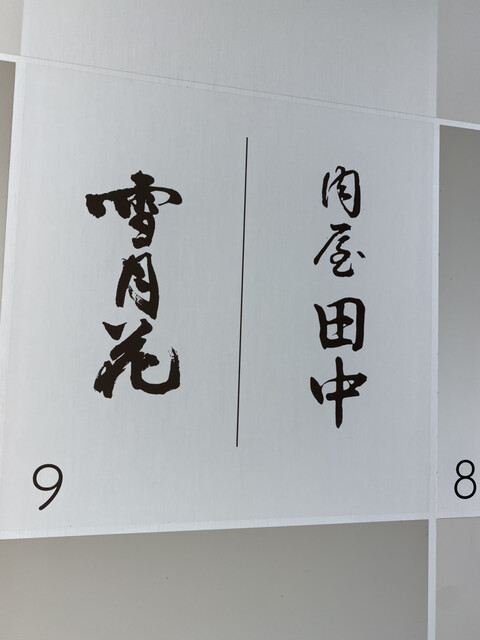 肉屋田中
雪月花
9
8